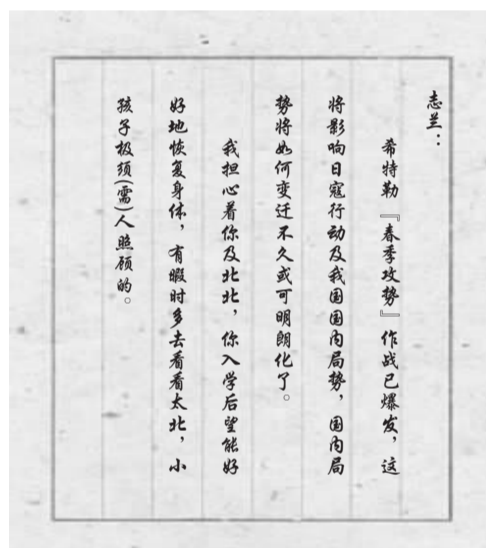 志兰：
希特勒『春季攻势』作战已爆发，这
将影响日寇行动及我国国内局势，国内局
势将如何变迁不久或可明朗化了。
我担心着你及北北，你入学后望能好
好地恢复身体，有暇时多去看看太北，小
孩子极须(需)人照顾的。